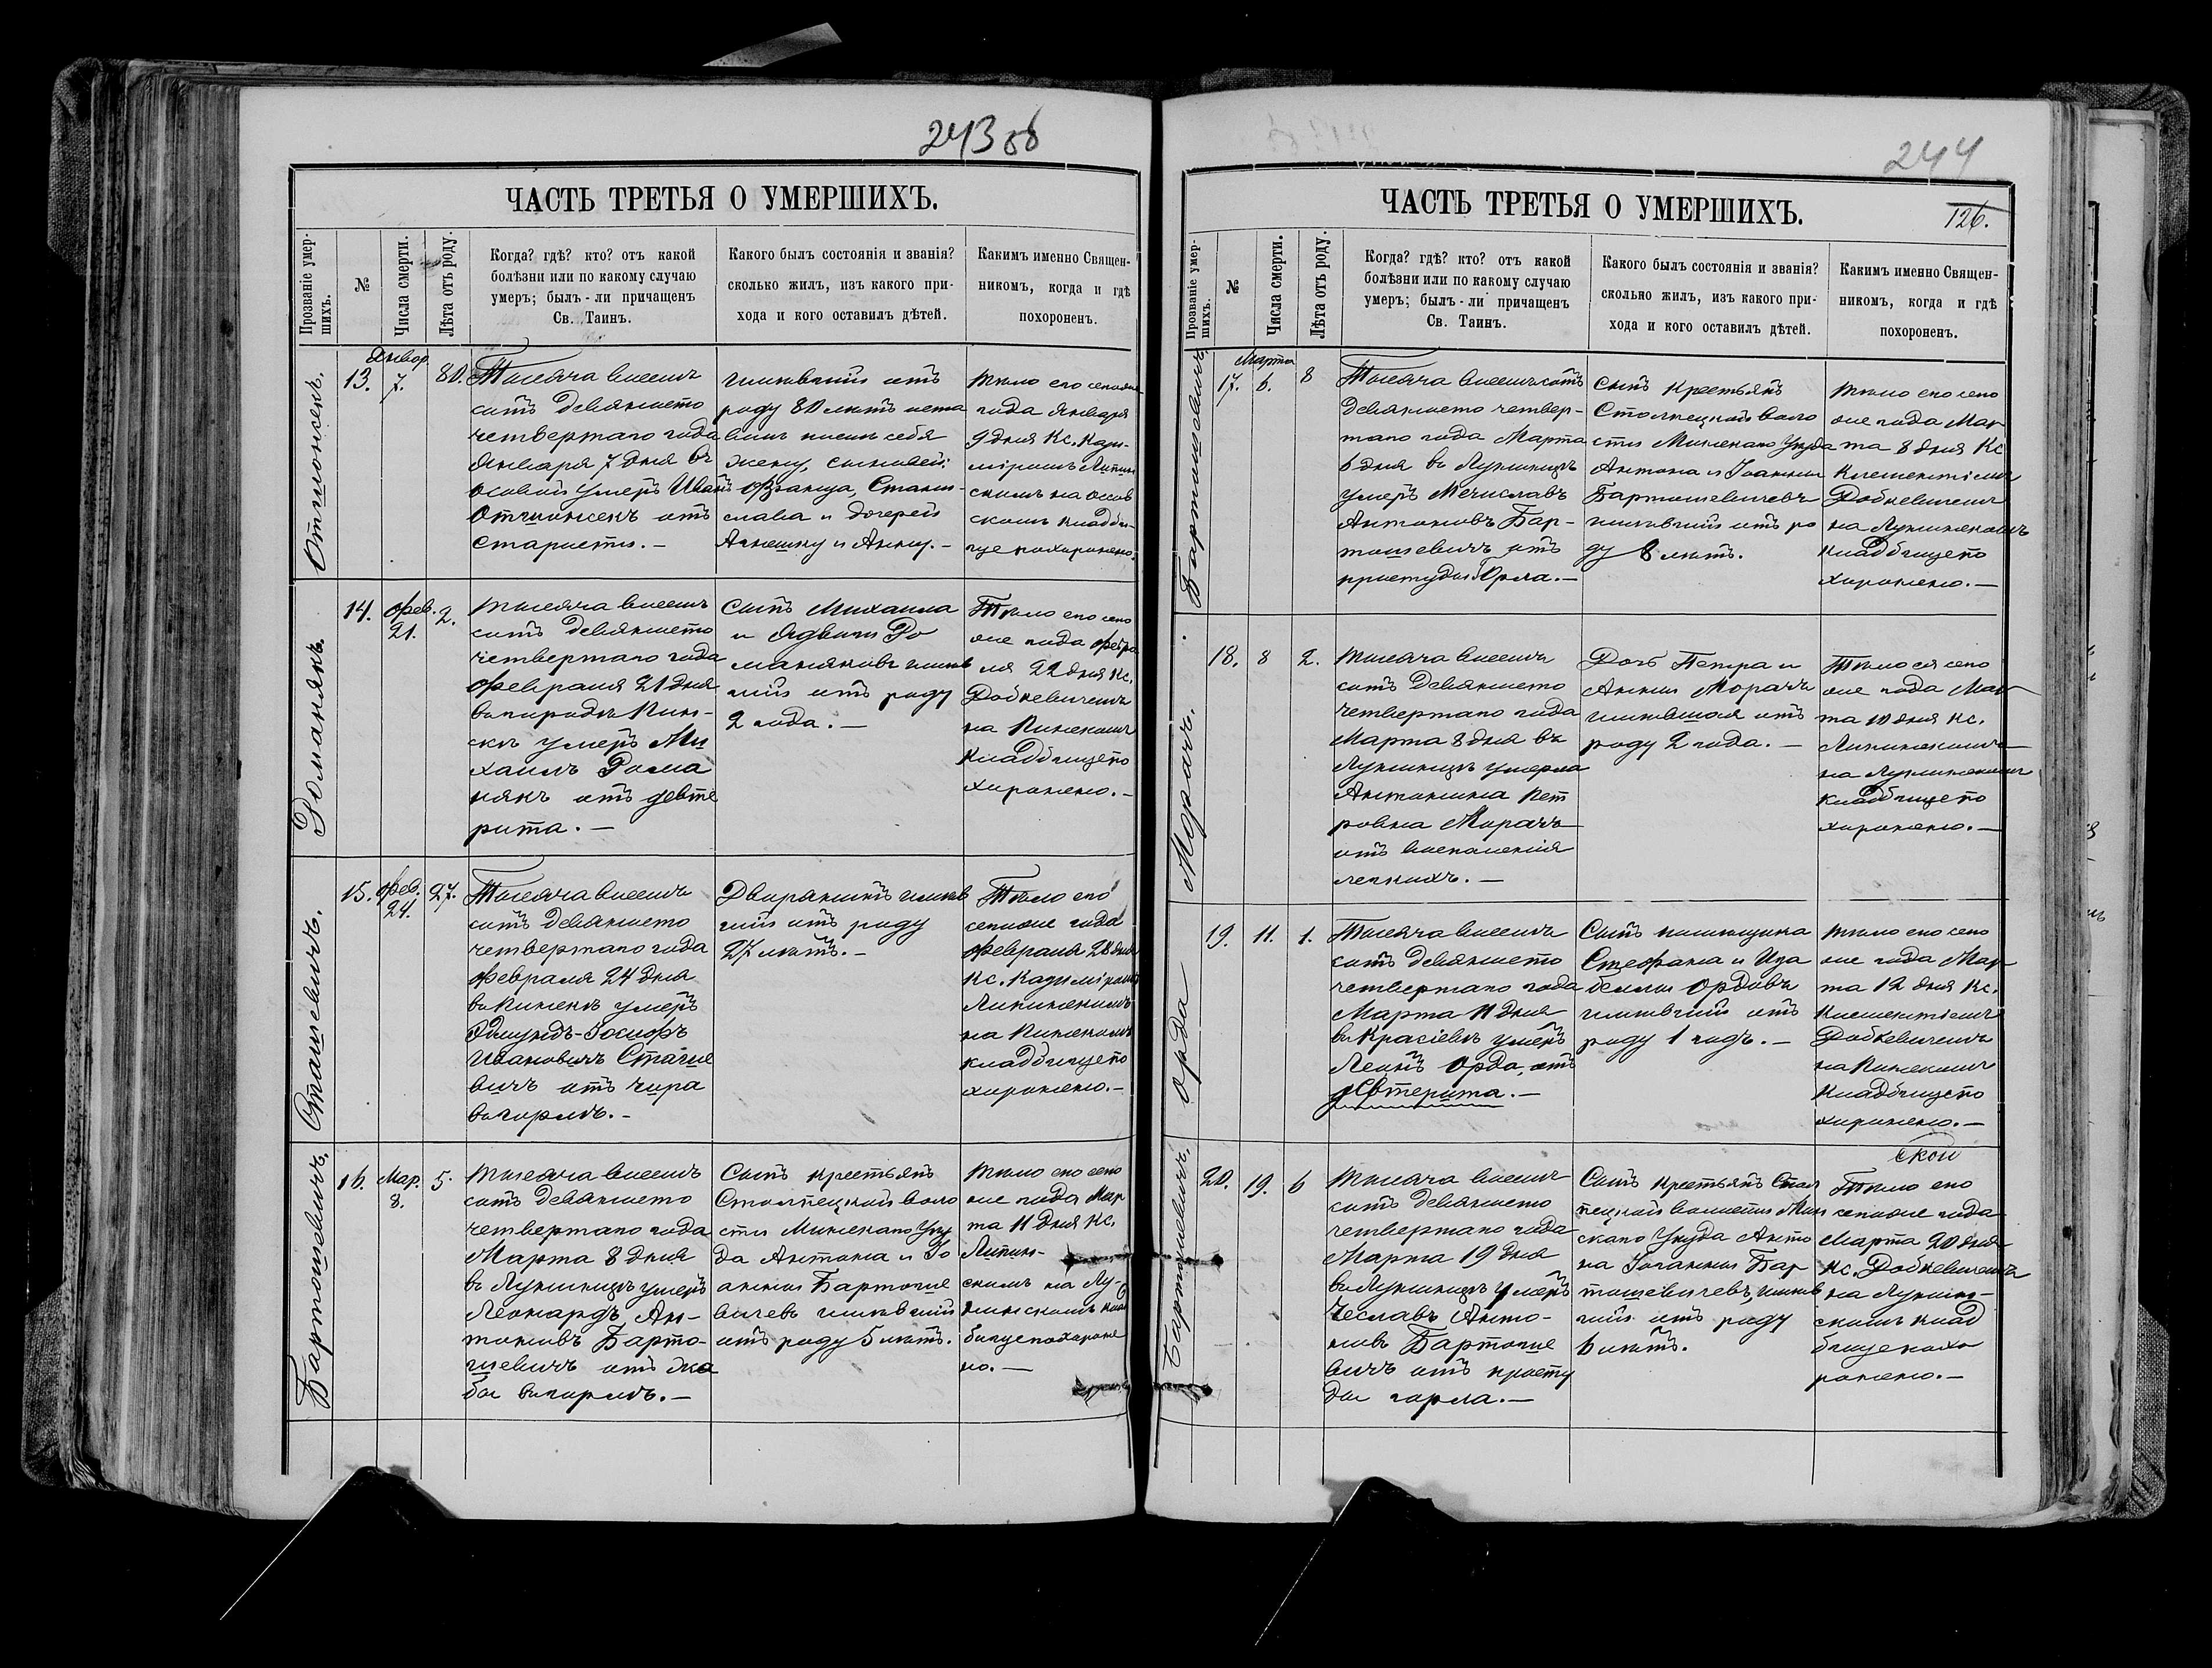 243 об
ЧАСТЬ ТРЕТЬЯ О УМЕРШИХЪ.
Прозваніе умер-
шихъ.
№
Числа смерти.
Лѣта отъ роду.
Когда? гдѣ? кто? отъ какой
болѣзни или по какому случаю
умеръ; былъ-ли причащенъ
Св. Таинъ.
Какого былъ состоянія и званія?
сколько жилъ, изъ какого при-
хода и кого оставилъ дѣтей.
Какимъ именно Священ-
никомъ, когда и гдѣ
похороненъ.
13.
Январ.
7.
80.
Тысяча восемь
сотъ девяносто
четвертаго года
Января 7 дня въ
умеръ Иванъ
отъ
старости.-
имѣвшій отъ
роду 80 лѣтъ оста
вилъ послѣ себя
жену, сыновей:
Франца, Стани-
слава и дочерей
и Анну.-
тѣло его сегоже
года Января
9 дня Кс. Кази-
міромъ Липин
скимъ на
скомъ кладби-
ще похоронено.
Романякъ.
14.
Фев.
21.
2.
тысяча восемь
сотъ девяносто
четвертаго года
Февраля 21 дня
въ городѣ Пин-
скѣ умеръ Ми
хаилъ Рома
някъ отъ дефте
рита.-
Сынъ Михаила
и Ядвиги Ро
маняковъ имѣв
шій отъ роду
2 года.-
Тѣло его сего
же года Февра
ля 22 дня Кс.
Добкевичемъ
на Пинскомъ
кладбище по
хоронено.-
Сташевичъ.
15.
Фев.
24.
27.
Тысяча восемь
сотъ девяносто
четвертаго года
Февраля 24 дня
въ Пинскѣ умеръ
Эдмундъ-Іосифъ
Ивановичъ Сташе
вичъ отъ чира
въ горлѣ.-
Дворянинъ имѣв
шій отъ роду
27 лѣтъ.-
Тѣло его
сегоже года
Февраля 28 дня
Кс. Казиміромъ
Липинскимъ
на Пинскомъ
кладбище по
хоронено.-
Бартошевичъ.
16.
Мар.
8.
5.
тысяча восемь
сотъ девяносто
четвертаго года
Марта 8 дня
въ Лунинцѣ умеръ
Леонардъ Ан-
тоновъ Барто-
шевичъ отъ жа
бы въ горлѣ.-
Сынъ крестьянъ
Столпецкой воло
сти Минскаго Уѣз
да Антона и Іо
анны Бартоше
вичевъ имѣвшій
отъ роду 5 лѣтъ.
тѣло его сего
же года Мар
та 11 дня Кс.
Липин-
скимъ на Лу-
нинскомъ клад
бище похороне
но.-
244
126.
ЧАСТЬ ТРЕТЬЯ О УМЕРШИХЪ.
Прозваніе умер-
шихъ.
№
Числа смерти.
Лѣта отъ роду.
Когда? гдѣ? кто? отъ какой
болѣзни или по какому случаю
умеръ; былъ-ли причащенъ
Св. Таинъ.
Какого былъ состоянія и званія?
сколько жилъ, изъ какого при-
хода и кого оставилъ дѣтей.
Какимъ именно Священ-
никомъ, когда и гдѣ
похороненъ.
Бартошевичъ
17.
Марта
6.
8
Тысяча восемьсотъ
девяносто четвер-
таго года Марта
6 дня въ Лунинцѣ
умеръ Мечиславъ
Антоновъ Бар-
тошевичъ отъ
простуды
Сынъ крестьянъ
Столпецкой воло
сти Минскаго Уѣзда
Антона и Іоанны
Бартошевичевъ
имѣвшій отъ ро
ду 8 лѣтъ.
тѣло его сего
же года Мар
та 8 дня Кс
Клементіемъ
Добкевичемъ
на Лунинскомъ
кладбище по
хоронено.-
Морачъ.
18.
8
2.
тысяча восемь
сотъ девяносто
четвертаго года
Марта 8 дня въ
Лунинцѣ умерла
Антонина Пет
ровна Морачъ
отъ воспаленія
легкихъ.-
Дочь Петра и
Анны Морачъ
имѣвшая отъ
роду 2 года.-
Тѣло ея сего
же года Мар
та 10 дня Кс.
Липинскимъ
на Лунинскомъ
кладбище по
хоронено.-
Орда
19.
11.
1.
Тысяча восемь
сотъ девяносто
четвертаго года
Марта 11 дня
въ Красіевѣ умеръ
Леонъ Орда, отъ
дефтерита.-
Сынъ помѣщика
Стефана и Иза
беллы Ордовъ
имѣвшій отъ
роду 1 годъ.-
тѣло его сего
же года Мар
та 12 дня Кс.
Клементіемъ
Добкевичемъ
на Пинскомъ
кладбище по
хоронено.-
Бартошевичъ.
20.
19.
6
тысяча восемь
сотъ девяносто
четвертаго года
Марта 19 дня
въ Лунинцѣ умеръ
Чеславъ Анто-
новъ Бартоше
вичъ отъ просту
ды горла.-
Сынъ крестьянъ Стол
пецкой волости Мин
скаго Уѣзда Анто
на Іоанны Бар
тошевичевъ, имѣв
шій отъ роду
6 лѣтъ.
Тѣло его
сегоже года
Марта 20 дня
Кс. Добкевичемъ
на Лунин-
скомъ клад
бище похо
ронено.-